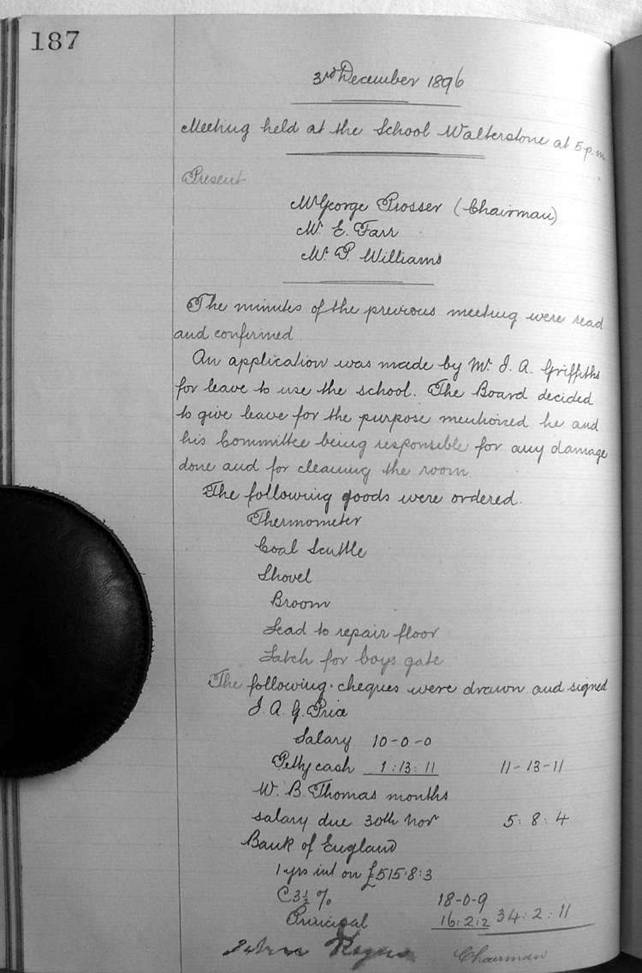 187
3rd December 1896
Meeting held at the School Walterstone at 5 p.m.
Present
Mr George Prosser (Chairman)
Mr. E. Farr
Mr. P. Williams
The minutes of the previous meeting were read
and confirmed
An application was made by Mr. J. A. Griffiths
for leave to use the school. The Board decided
to give leave for the purpose mentioned he and
his Committee being responsible for any damage
done and for cleaning the room.
The following goods were ordered.
Thermometer
Coal Scuttle
Shovel
Broom
Lead to repair floor
Latch for boys gate
The following cheques were drawn and signed
J. A. G. Price
Salary 10-0-0
Petty cash 1:13:11 11-13-11
W. B. Thomas months
salary due 30th Nov 5:8:4
Bank of England
1 yrs int on £515:8:3
@ 3½ % 18-0-9
Principal 16:2:2 34:2:11
John Chairman